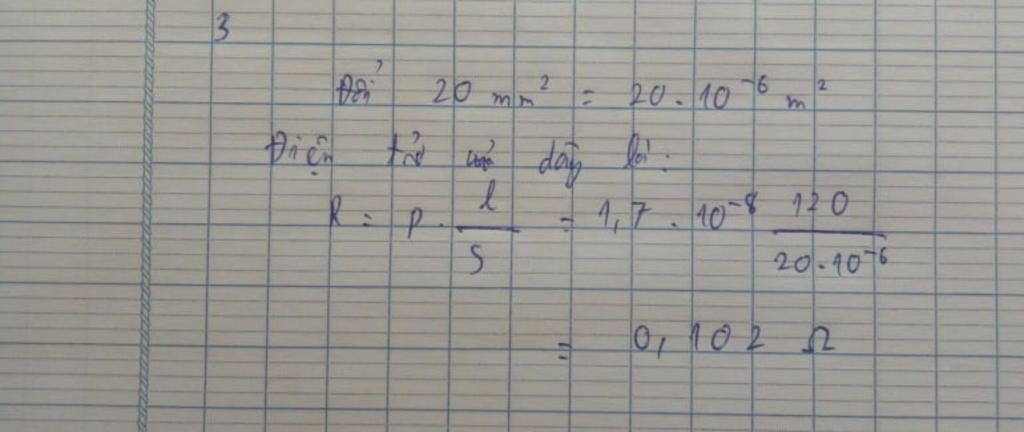 3
Đổi 20 mm² = 20.10⁻⁶ m²
Điện trở dây là:
R = ρ. l/S = 1,7 . 10⁻⁸ 120/20.10⁻⁶
= 0,102 Ω